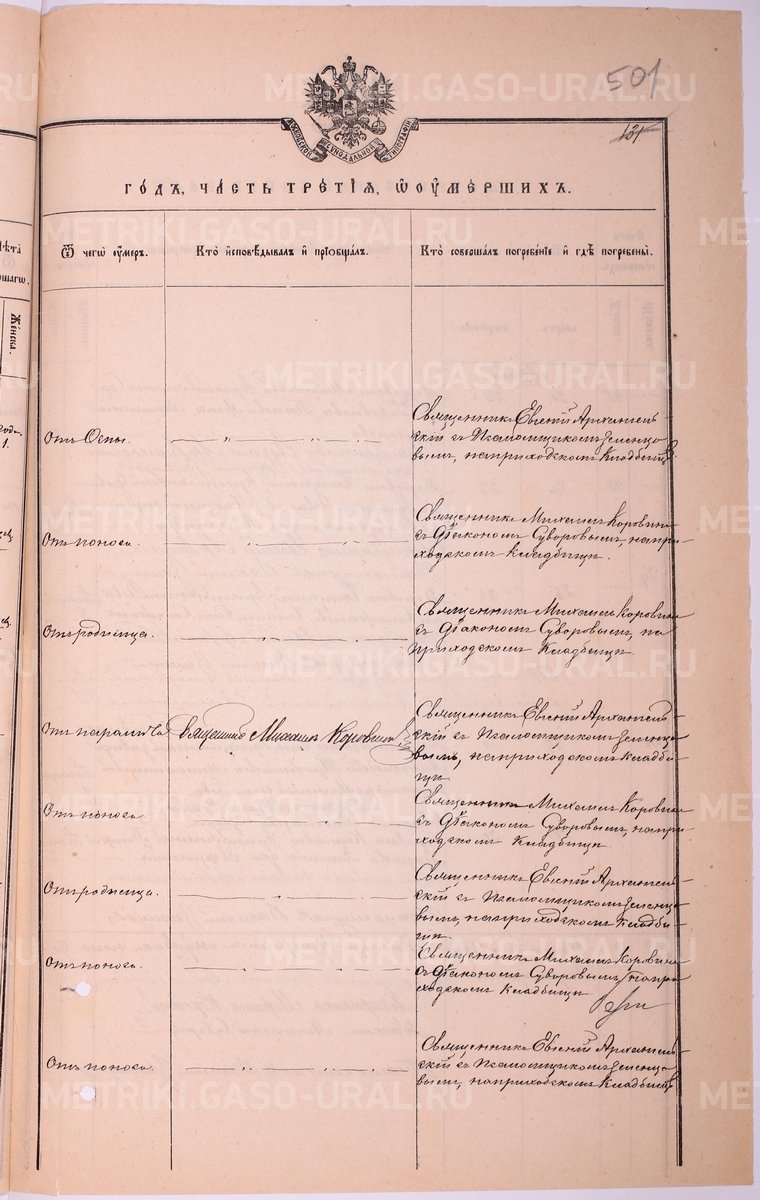 501
131
МОСКОВСКОЙ СѴНОДАЛЬНОЙ ТИПОГРАФІИ
ГОДЪ, ЧАСТЬ ТРЕТІЯ, Ѡ ОУМЕРШИХЪ.
Ѿ чегѡ оумеръ.
Кто исповѣдывалъ и пріобщалъ.
Кто совершалъ погребеніе и гдѣ погребены.
лѣта
Женска.
1.
Отъ Оспы.
Священникъ Евгеній Архангель-
скій съ Псаломщикомъ Зеленцо-
вымъ, на приходскомъ Кладбищѣ.
Отъ поноса.
Священникъ Михаилъ Коровинъ
съ Діакономъ Суворовымъ, на при-
ходскомъ Кладбищѣ.
Отъ родимца.
Священникъ Михаилъ Коровинъ
съ Діакономъ Суворовымъ, на
приходскомъ Кладбищѣ.
Отъ паралича
Священникъ Михаилъ Коровинъ
Священникъ Евгеній Архангель-
скій съ Псаломщикомъ Зеленцо-
вымъ, на приходскомъ Кладби-
щѣ.
Отъ поноса.
Священникъ Михаилъ Коровинъ
съ Діакономъ Суворовымъ, на при-
ходскомъ Кладбищѣ.
Отъ родимца.
Священникъ Евгеній Архангель-
скій съ Псаломщикомъ Зеленцо-
вымъ, на приходскомъ Кладби-
щѣ.
Отъ поноса.
Священникъ Михаилъ Коровинъ
съ Діакономъ Суворовымъ, на при-
ходскомъ Кладбищѣ.
Отъ поноса.
Священникъ Евгеній Архангель-
скій съ Псаломщикомъ Зеленцо-
вымъ, на приходскомъ Кладбищѣ.
METRIKI.GASO-URAL.RU